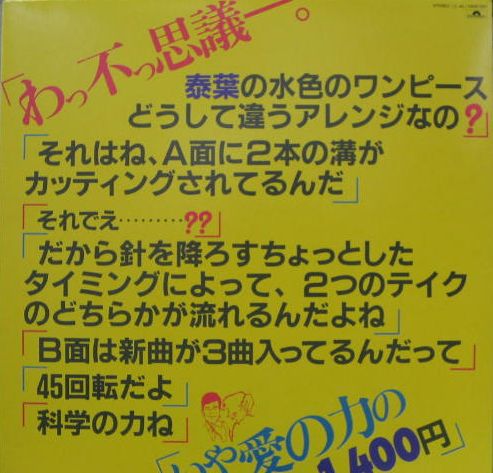 「わっ不っ思議―。
泰葉の水色のワンピース
どうして違うアレンジなの?」
「それはね、A面に2本の溝が
カッティングされてるんだ」
「それでえ………??」
「だから針を降ろすちょっとした
タイミングによって、2つのテイク
のどちらかが流れるんだよね」
「B面は新曲が3曲入ってるんだって」
「45回転だよ」
「科学の力ね」
「いや愛の力の
1,400円」